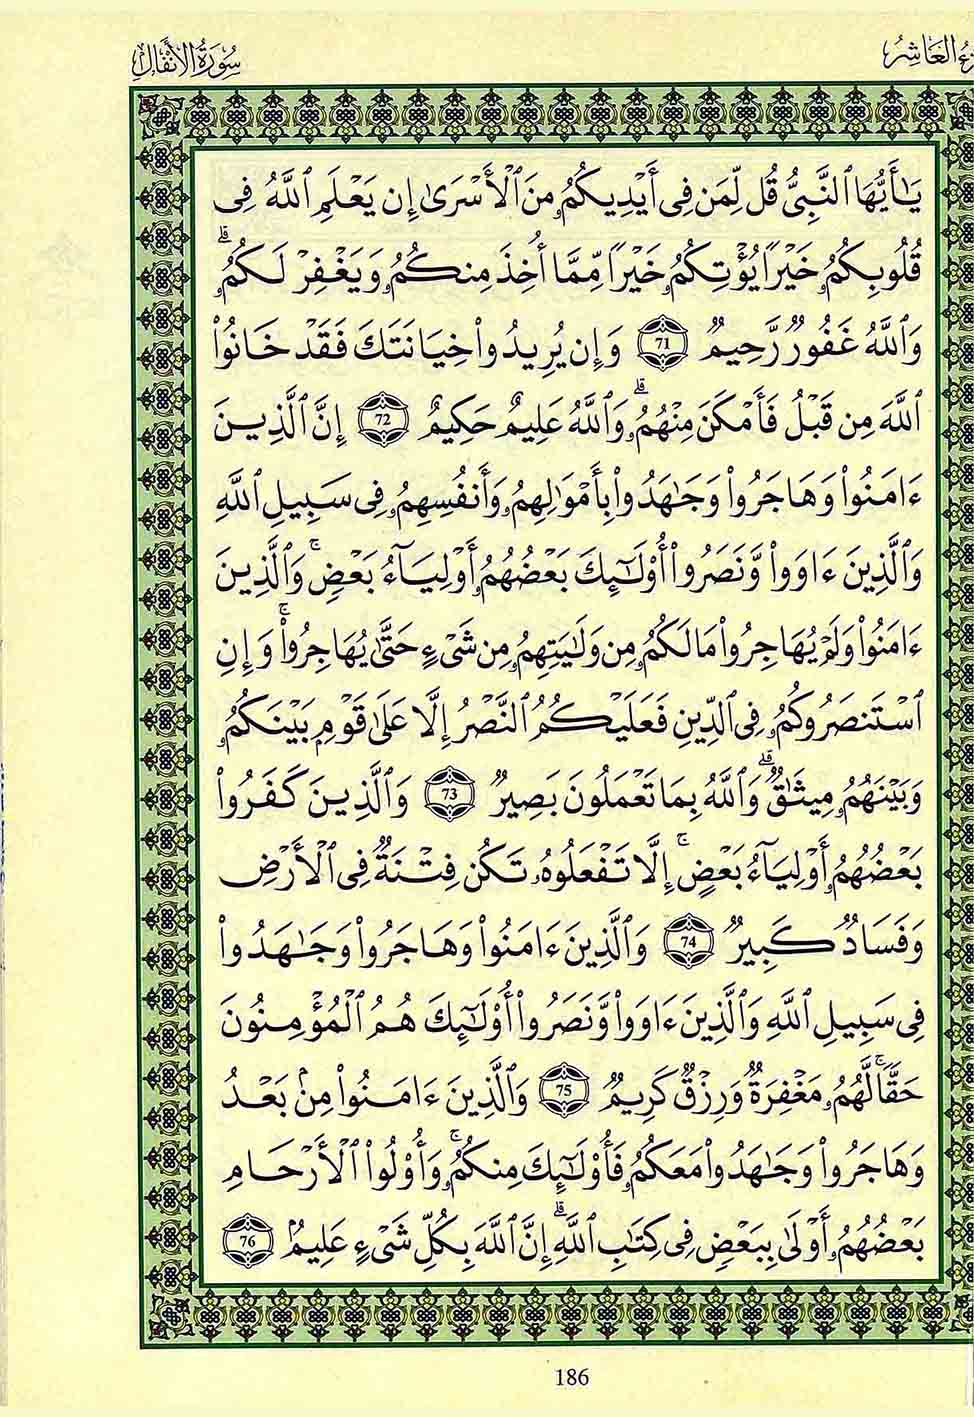 سُورَةُ الأَنفَالِ
العَاشِرُ
يَـٰٓأَيُّهَا ٱلنَّبِىُّ قُل لِّمَن فِىٓ أَيْدِيكُمُۥ مِنَ ٱلْأَسْرَىٰٓ إِن يَعْلَمِ ٱللَّهُ فِى
قُلُوبِكُمُۥ خَيْرًا يُؤْتِكُمُۥ خَيْرًا مِّمَّآ أُخِذَ مِنكُمُۥ وَيَغْفِرْ لَكُمُۥ ۗ
وَٱللَّهُ غَفُورٌ رَّحِيمٌ 71 وَإِن يُرِيدُوا۟ خِيَانَتَكَ فَقَدْ خَانُوا۟
ٱللَّهَ مِن قَبْلُ فَأَمْكَنَ مِنْهُمُۥ ۗ وَٱللَّهُ عَلِيمٌ حَكِيمٌ 72 إِنَّ ٱلَّذِينَ
ءَامَنُوا۟ وَهَاجَرُوا۟ وَجَـٰهَدُوا۟ بِأَمْوَٰلِهِمُۥ وَأَنفُسِهِمُۥ فِى سَبِيلِ ٱللَّهِ
وَٱلَّذِينَ ءَاوَوا۟ وَّنَصَرُوٓا۟ أُو۟لَـٰٓئِكَ بَعْضُهُمُۥٓ أَوْلِيَآءُ بَعْضٍ ۚ وَٱلَّذِينَ
ءَامَنُوا۟ وَلَمْ يُهَاجِرُوا۟ مَا لَكُمُۥ مِن وَلَـٰيَتِهِمُۥ مِن شَىْءٍ حَتَّىٰ يُهَاجِرُوا۟ ۚ وَإِنِ
ٱسْتَنصَرُوكُمُۥ فِى ٱلدِّينِ فَعَلَيْكُمُ ٱلنَّصْرُ إِلَّا عَلَىٰ قَوْمٍۭ بَيْنَكُمُۥ
وَبَيْنَهُمُۥ مِيثَـٰقٌ ۗ وَٱللَّهُ بِمَا تَعْمَلُونَ بَصِيرٌ 73 وَٱلَّذِينَ كَفَرُوا۟
بَعْضُهُمُۥٓ أَوْلِيَآءُ بَعْضٍ ۚ إِلَّا تَفْعَلُوهُۥ تَكُن فِتْنَةٌ فِى ٱلْأَرْضِ
وَفَسَادٌ كَبِيرٌ 74 وَٱلَّذِينَ ءَامَنُوا۟ وَهَاجَرُوا۟ وَجَـٰهَدُوا۟
فِى سَبِيلِ ٱللَّهِ وَٱلَّذِينَ ءَاوَوا۟ وَّنَصَرُوٓا۟ أُو۟لَـٰٓئِكَ هُمُ ٱلْمُؤْمِنُونَ
حَقًّا ۚ لَّهُمُۥ مَغْفِرَةٌ وَرِزْقٌ كَرِيمٌ 75 وَٱلَّذِينَ ءَامَنُوا۟ مِنۢ بَعْدُ
وَهَاجَرُوا۟ وَجَـٰهَدُوا۟ مَعَكُمُۥ فَأُو۟لَـٰٓئِكَ مِنكُمُۥ ۚ وَأُو۟لُوا۟ ٱلْأَرْحَامِ
بَعْضُهُمُۥٓ أَوْلَىٰ بِبَعْضٍ فِى كِتَـٰبِ ٱللَّهِ ۗ إِنَّ ٱللَّهَ بِكُلِّ شَىْءٍ عَلِيمٌۢ 76
186